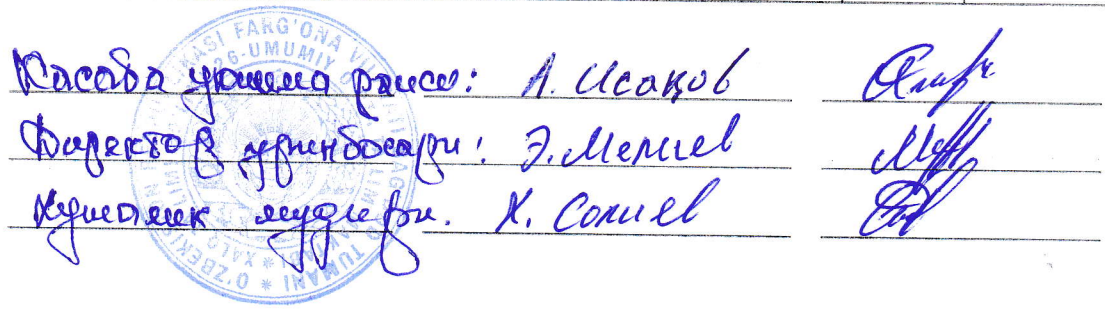 Касаба уюшма раиси: А. Исақов
Директор ўринбосари: Э. Мелиев
Хўжалик мудири. Х. Солиев
FARG'ONA
26-UMUMIY
TUMANI
O'ZBEKI